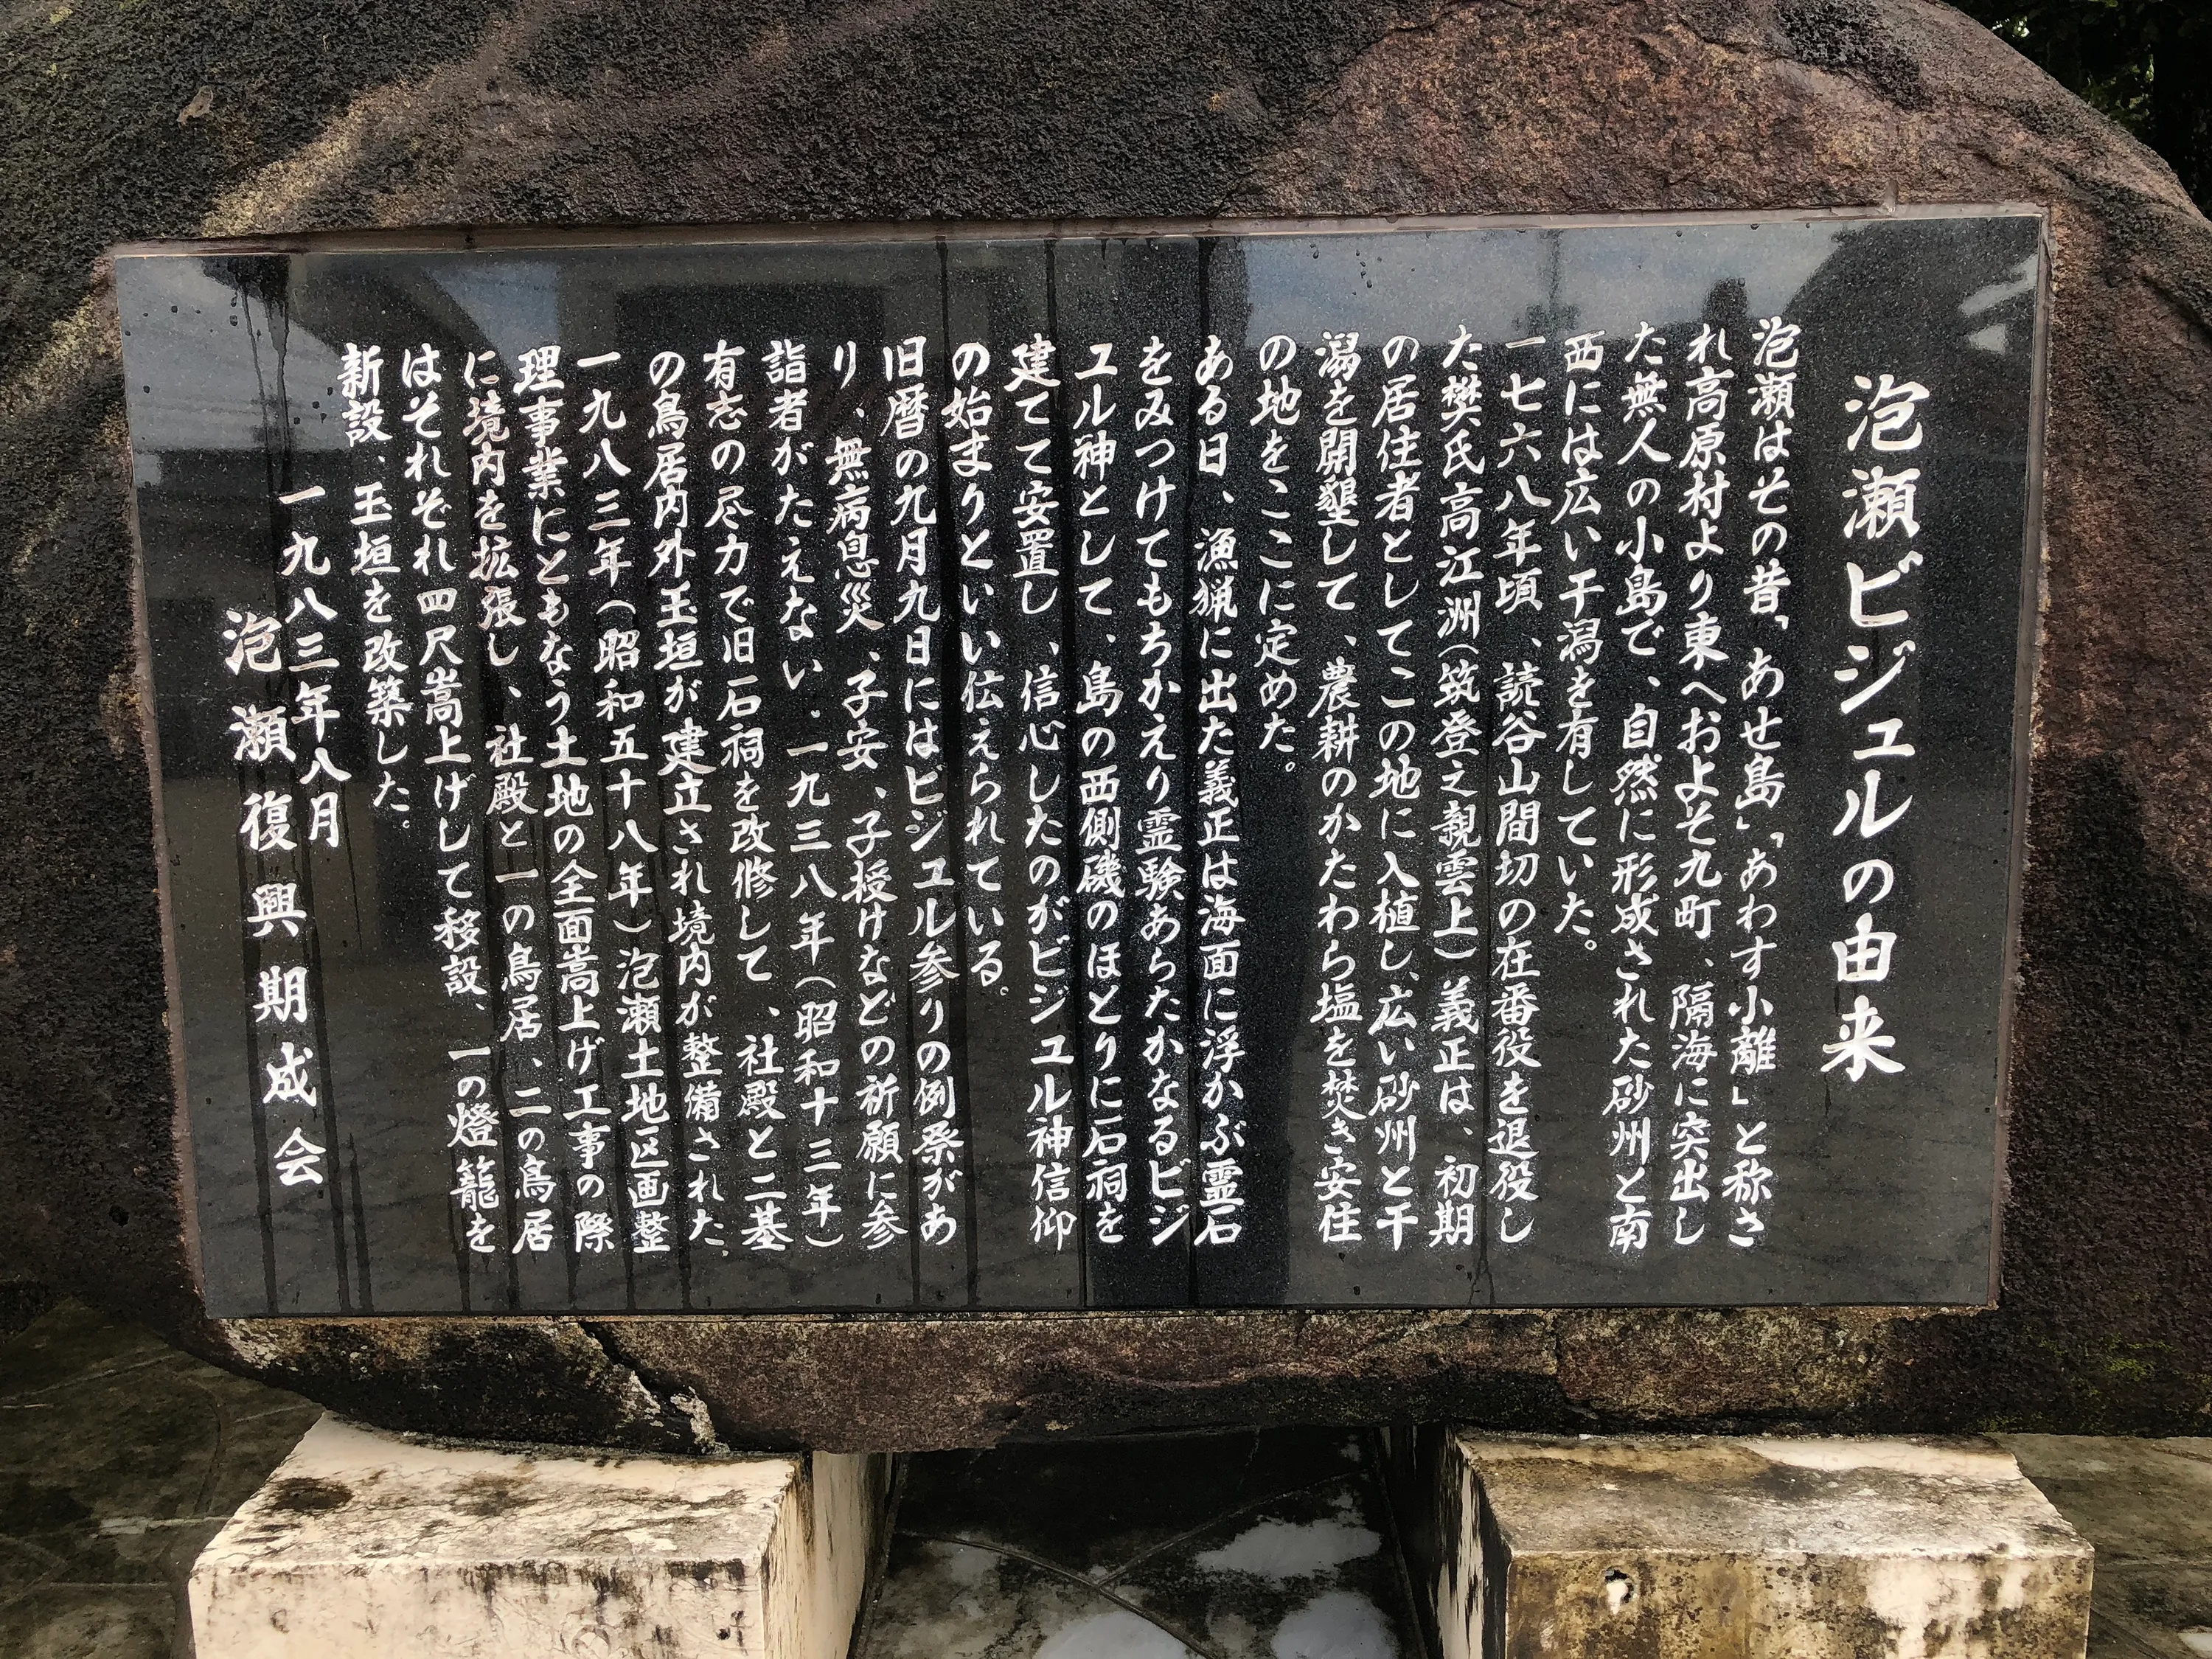 泡瀬ビジュルの由来
泡瀬はその昔、「あせ島」「あわす小離」と称さ
れ高原村より東へおよそ九町、隔海に突出し
た無人の小島で、自然に形成された砂州と南
西には広い干潟を有していた。
一七六八年頃、読谷山間切の在番役を退役し
た樊氏高江洲(筑登之親雲上)義正は、初期
の居住者としてこの地に入植し、広い砂州と干
潟を開墾して、農耕のかたわら塩を焚き安住
の地をここに定めた。
ある日、漁猟に出た義正は海面に浮かぶ霊石
をみつけてもちかえり霊験あらたかなるビジ
ュル神として、島の西側磯のほとりに石祠を
建てて安置し、信心したのがビジュル神信仰
の始まりといい伝えられている。
旧暦の九月九日にはビジュル参りの例祭があ
り、無病息災、子安、子授けなどの祈願に参
詣者がたえない。一九三八年(昭和十三年)
有志の尽力で旧石祠を改修して、社殿と二基
の鳥居内外玉垣が建立され境内が整備された。
一九八三年(昭和五十八年)泡瀬土地区画整
理事業にともなう土地の全面嵩上げ工事の際
に境内を拡張し、社殿と一の鳥居、二の鳥居
はそれぞれ四尺嵩上げして移設、一の燈籠を
新設、玉垣を改築した。
一九八三年八月
泡瀬復興期成会